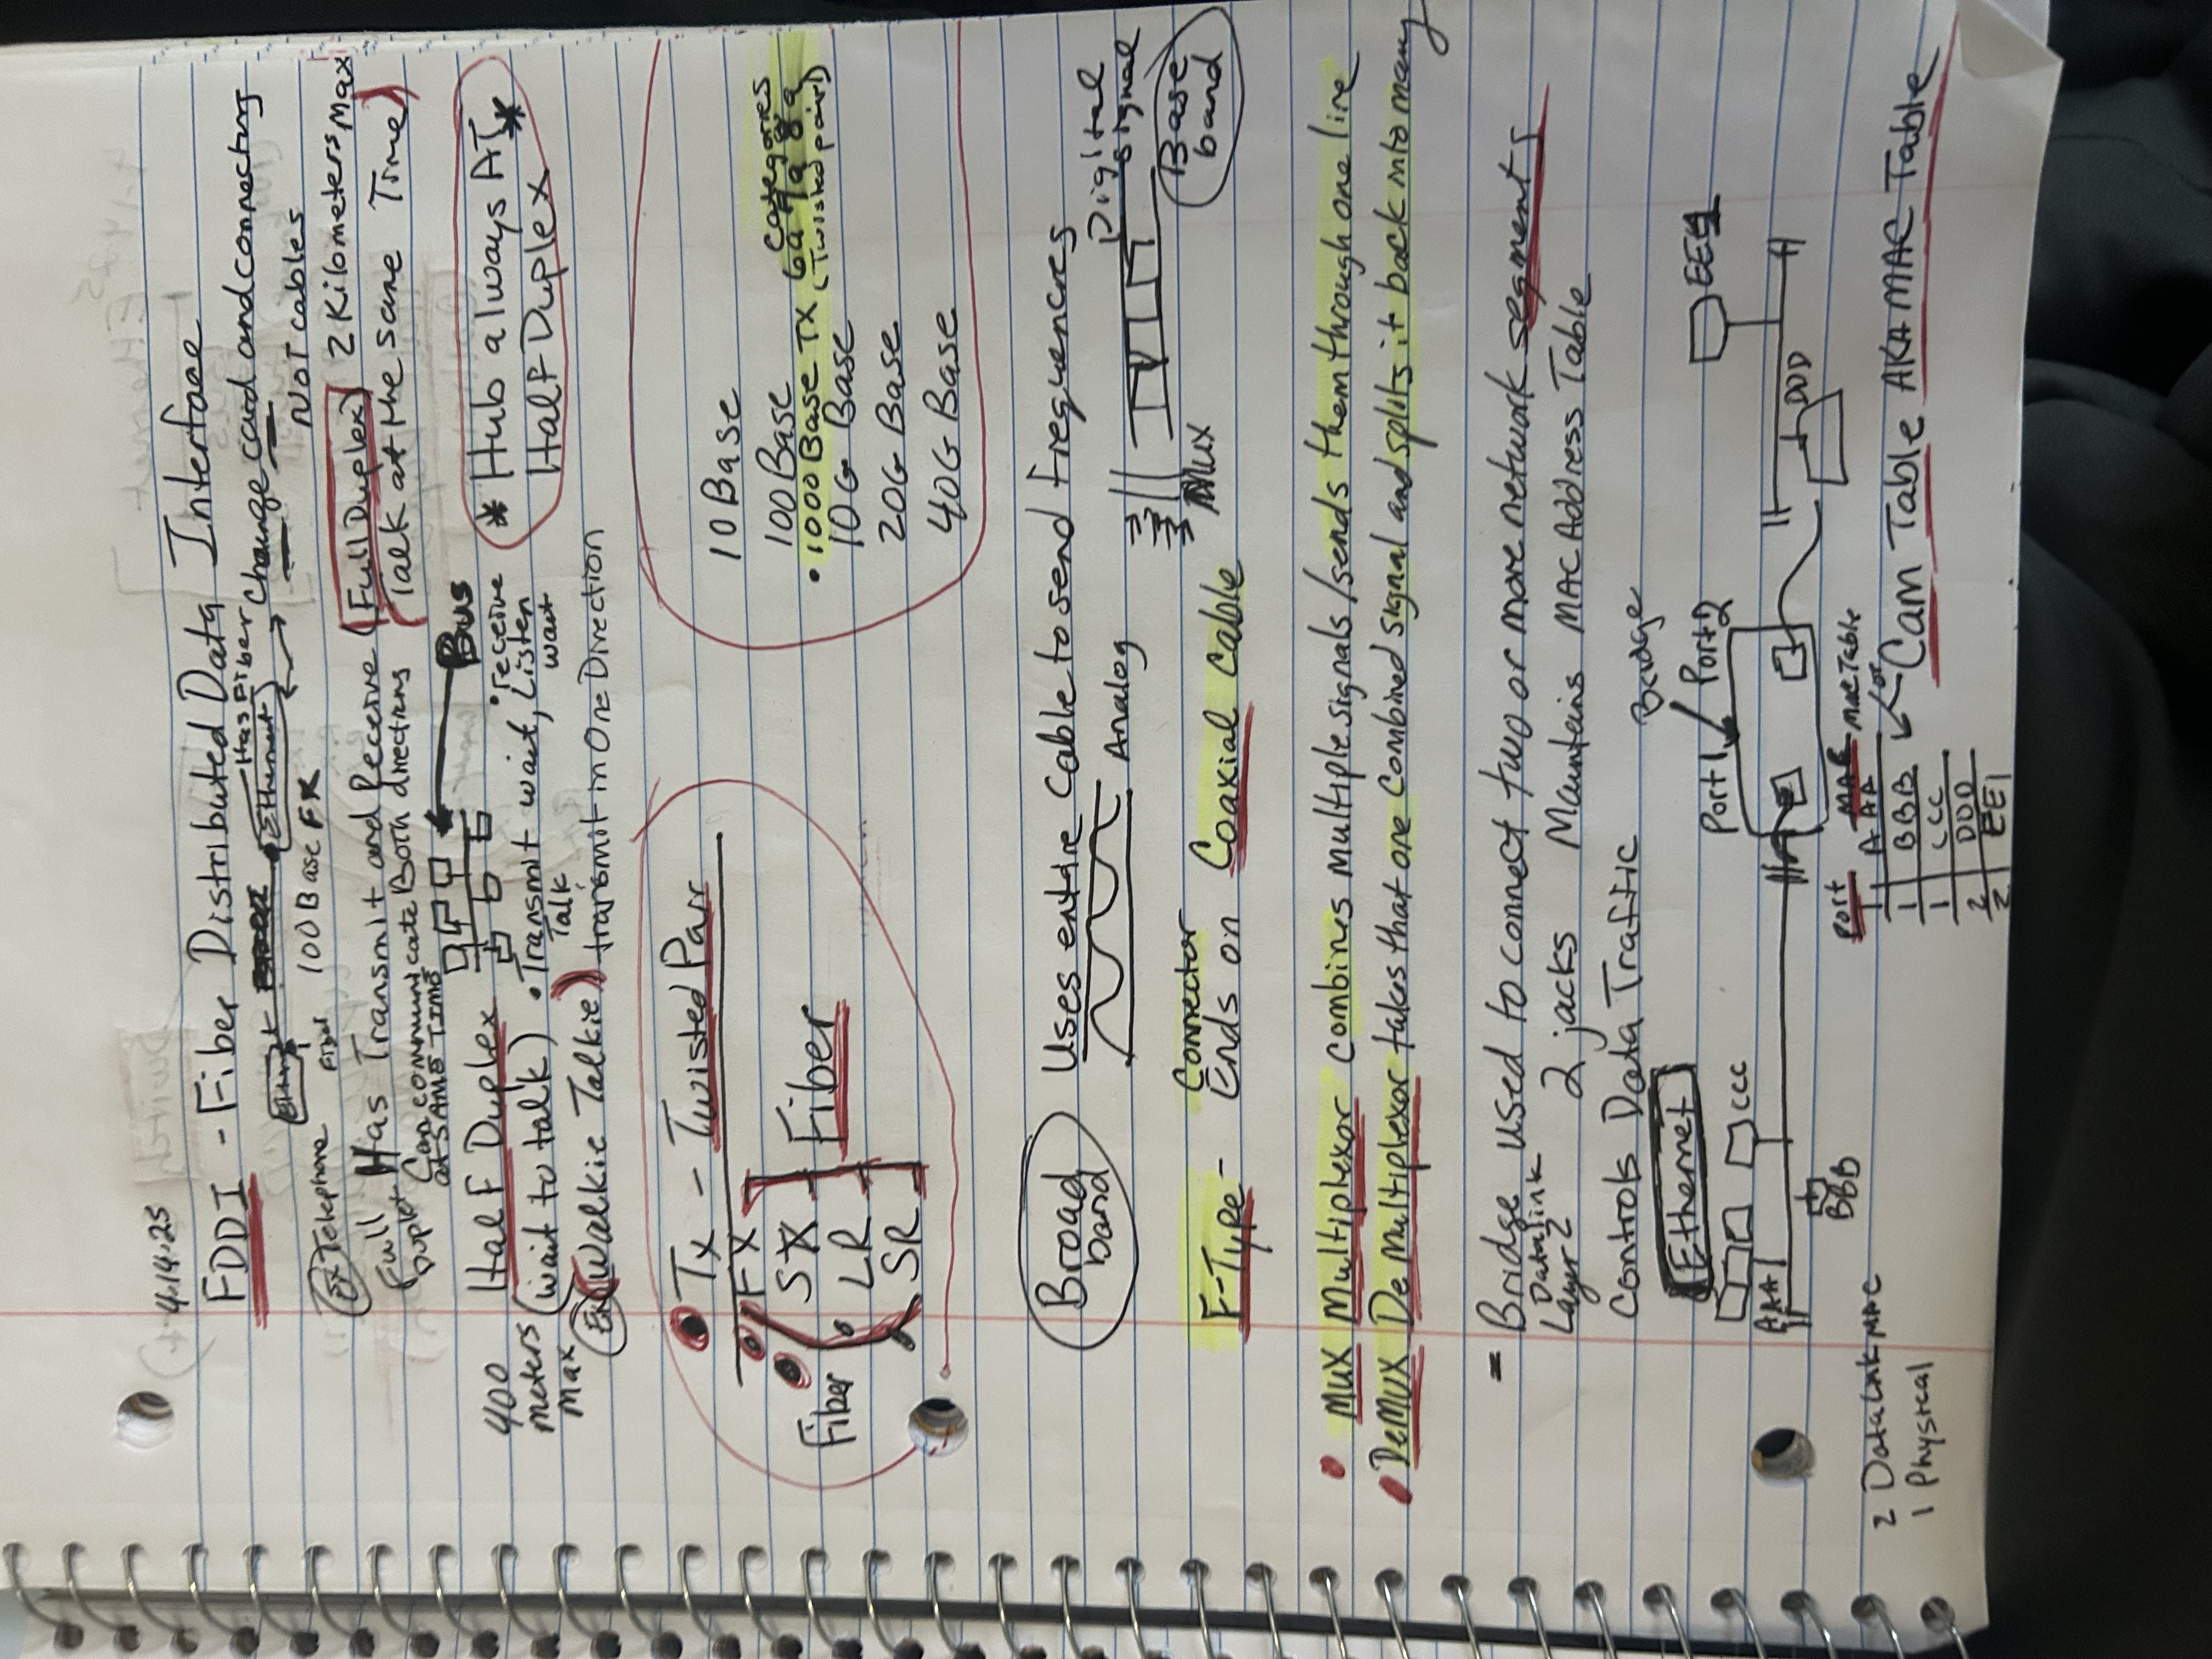 4.14.25
FDDI - Fiber Distributed Data Interface
Has Fiber
Ethernet
Change card and connecting
NOT cables
Ex Telephone
Fiber
100 Base FX
Full Duplex
Has Transmit and Receive (Full Duplex) 2 Kilometers Max
Can communicate Both directions
at SAME TIME
(Talk at the same Time)
Bus
400 meters Max
Half Duplex
(wait to talk)
• Transmit wait, Listen
Talk
• receive
wait
* Hub always AT *
Half Duplex
Ex (Walkie Talkie)
transmit in One Direction
Tx - Twisted Pair
FX
SX
LR
SR
Fiber
Fiber
10 Base
100 Base
• 1000 Base TX
categories
6a 7a 8a
(Twisted pair)
10G Base
20G Base
40G Base
Broad band
Uses entire Cable to send frequencies
Analog
Digital signal
Mux
Base band
F-Type - Connector
Ends on Coaxial Cable
• MUX Multiplexor combines multiple signals / sends them through one line
• DeMUX DeMultiplexor takes that one combined signal and splits it back into many
= Bridge used to connect two or more network segments
Datalink
Layer 2
2 jacks
Maintains MAC Address Table
Controls Data Traffic
Ethernet
Bridge
Port 1
Port 2
AAA
CCC
BBB
EE1
DDD
2 DataLink MAC
1 Physical
Port MAC
MAC Table
or
Cam Table AKA MAC Table
1 AAA
1 BBB
1 CCC
2 DDD
2 EE1